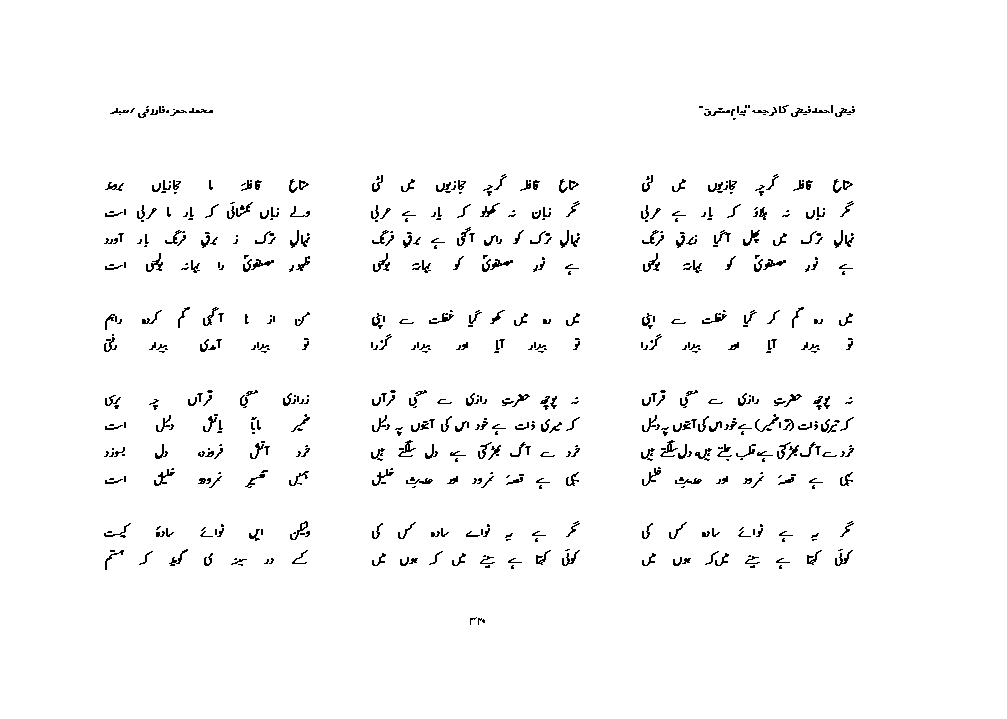 فیض احمد فیض کا ترجمہ "پیامِ مشرق"
محمد حمزہ فاروقی / سید
متاع قافلہ گرچہ حجازیوں میں لٹی
مگر زباں نہ ہلاؤ کہ یار ہے عربی
نہالِ ترک میں پھل آگیا زبرقِ فرنگ
ہے نورِ مصطفویؐ کو بہانہ بولہبی
میں رہ گم کر گیا غفلت سے اپنی
تو بیدار آیا اور بیدار گزرا
نہ پوچھ حضرتِ رازی سے معنیِ قرآں
کہ تیری ذات (ترا ضمیر) ہے خود اس کی آیتوں پہ دلیل
خرد سے آگ بھڑکتی ہے، قلب جلتے ہیں، دل سلگتے ہیں
یہی ہے قصۂ نمرود اور حدیثِ خلیل
مگر یہ ہے نوائے سادہ کس کی
کوئی کہتا ہے سینے میں کہ ہوں میں
متاع قافلہ گرچہ حجازیوں میں لٹی
مگر زبان نہ کھولو کہ یار ہے عربی
نہالِ ترک کو راس آگئی ہے برقِ فرنگ
ہے نورِ مصطفویؐ کو بہانہ بولہبی
میں رہ میں کھو گیا غفلت سے اپنی
تو بیدار آیا اور بیدار گزرا
نہ پوچھ حضرتِ رازی سے معنیِ قرآں
کہ تیری ذات ہے خود اس کی آیتوں پہ دلیل
خرد سے آگ بھڑکتی ہے، دل سلگتے ہیں
یہی ہے قصۂ نمرود اور حدیثِ خلیل
مگر ہے یہ نوائے سادہ کس کی
کوئی کہتا ہے سینے میں کہ ہوں میں
متاع قافلۂ ما حجازیاں بردند
ولے زباں نکشائی کہ یارِ ما عربی است
نہالِ ترک ز برقِ فرنگ بار آورد
ظہورِ مصطفویؐ را بہانہ بولہبی است
من از نا آگہی گم کردہ راہم
تو بیدار آمدی بیدار رفتی
زرازی معنیِ قرآں چہ پرسی
ضمیرِ ما بآیاتش دلیل است
خرد آتش فروزد دل بسوزد
ہمیں تفسیرِ نمرود و خلیل است
ولیکن ایں نوائے سادۂ کیست
کسے در سینہ می گوید کہ ہستم